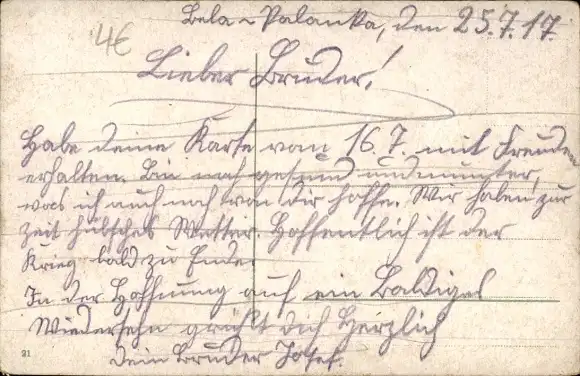 Bela-Palanka, den 25.7.17.
4€
Lieber Bruder!
Habe deine Karte vom 16.7. mit Freuden
erhalten. Bin noch gesund und munter,
was ich auch noch von dir hoffe. Wir haben zur
zeit hübsches Wetter. Hoffentlich ist der
Krieg bald zu Ende.
In der Hoffnung auf ein Baldiges
Wiedersehn grüßt dich Herzlich
dein Bruder Josef.
21